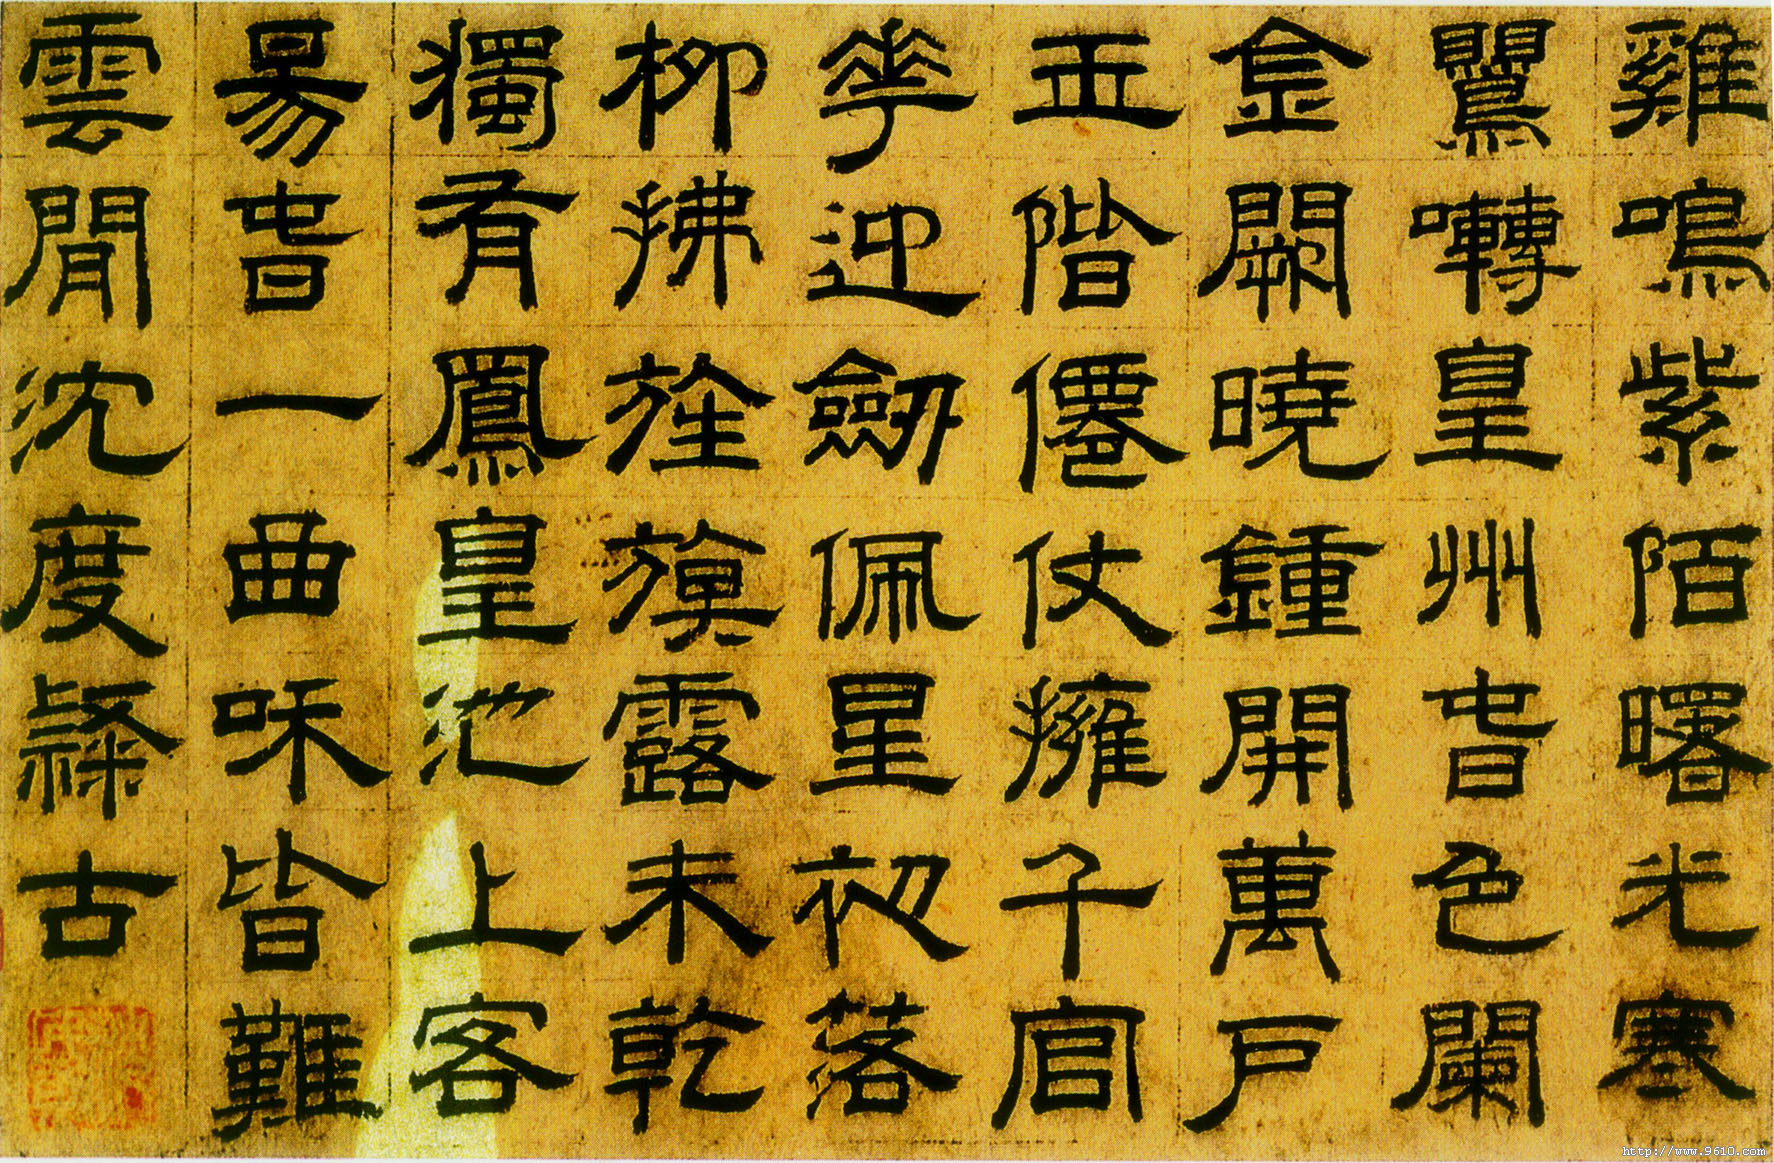 雞鳴紫陌曙光寒
鸎囀皇州旾色闌
金闕曉鍾開萬戶
玉階僊仗擁千官
華迎劒佩星初落
柳拂旌旗露未乾
獨有鳳皇池上客
昜旾一曲和皆難
雲閒沈度隸古
http://www.9610.com